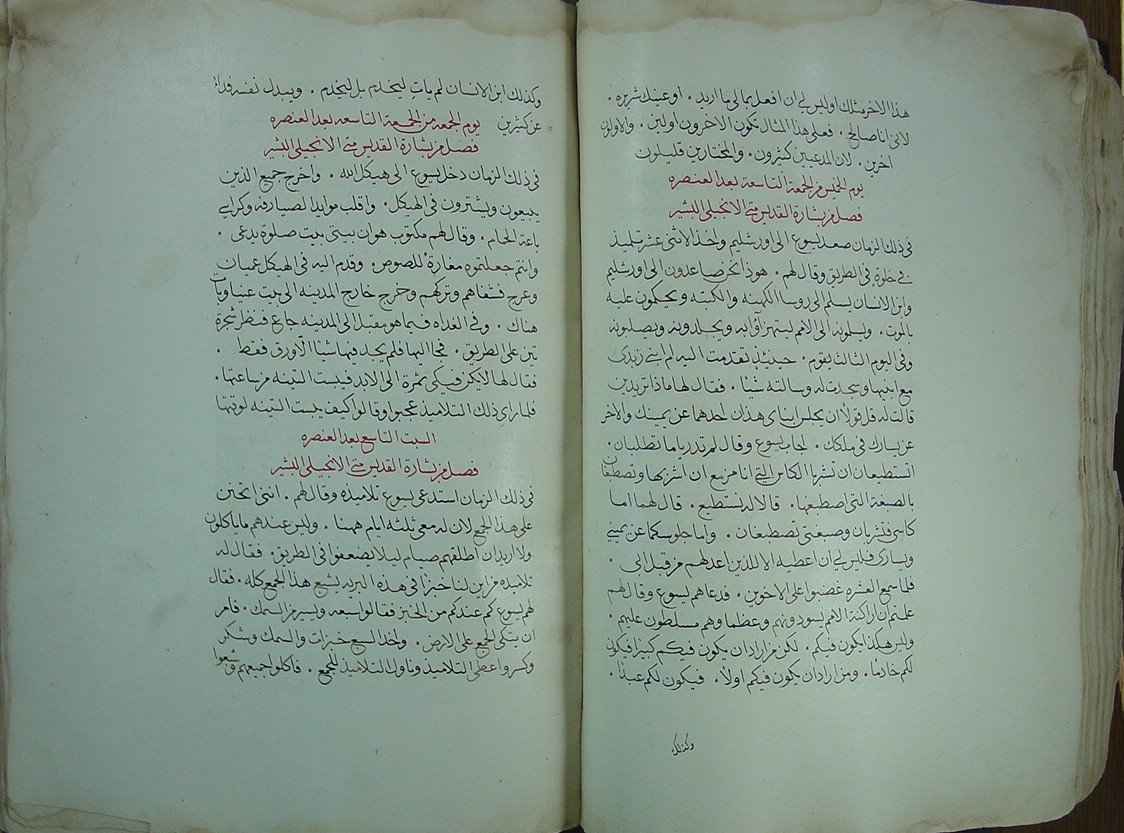 هذا الاخر مثلك اوليس لي ان افعل بمالي ما اريد . او عينك شريره .
لاني انا صالح . فعلى هذا المثال تكون الاخرون اولين . والاولون
اخرين . لان المدعيين كثيرون . والمختارين قليلون
يوم الخميس من الجمعة التاسعه بعد العنصره
فصل من بشارة القديس متى الانجيلي البشير
في ذلك الزمان صعد يسوع الى اورشليم واخذ الاثني عشر تلميذ
في خلوة في الطريق وقال لهم . هوذا نحن صاعدون الى اورشليم
وابن الانسان يسلم الى روسا الكهنه والكتبه ويحكمون عليه
بالموت . ويسلمونه الى الامم ليتهزاؤا به ويجلدونه ويصلبونه
وفي اليوم الثالث يقوم . حينيذٍ تقدمت اليه ام ابني زبدى
مع ابنيها وسجدت له وسالته شيئا . فقال لها ماذا تريدين
قالت له قل قولاً ان يجلس ابناي هذان احدهما عن يمينك والاخر
عن يسارك في ملكك . اجاب يسوع وقال لم تدريا ما تطلبان .
اتستطيعان ان تشربا الكاس التي انا مزمع ان اشربها وتصطبغان
بالصبغة التي اصطبغها . قالا له نستطيع . قال لهما اما
كاسي فتشربان وصبغتي تصطبغان . واما جلوسكما عن يميني
ويساري فليس لي ان اعطيه الا للذين اعد لهم من قبل ابي .
فلما سمع العشره غضبوا على الاخوين . فدعاهم يسوع وقال لهم
علمتم ان اراكنة الامم يسودونهم وعظماوهم مسلطون عليهم .
وليس هكذا يكون فيكم . لكن من اراد ان يكون فيكم كبيرا فيكون
لكم خادمًا . ومن اراد ان يكون فيكم اولاً . فيكون لكم عبدًا .
وكذلك
وكذلك ابن الانسان لم يات ليخدم بل ليخدم . ويبدل نفسه فداء
عن كثيرين
يوم الجمعه من الجمعة التاسعه بعد العنصره
فصل من بشارة القديس متى الانجيلي البشير
في ذلك الزمان دخل يسوع الى هيكل الله . واخرج جميع الذين
يبيعون ويشترون في الهيكل . واقلب موايد الصيارفه وكراسي
باعة الحمام . وقال لهم مكتوب هو ان بيتي بيت صلوة يدعى .
وانتم جعلتموه مغارة للصوص . وقدم اليه في الهيكل عميان
وعرج فشفاهم وتركهم وخرج خارج المدينه الى بيت عنيا وبات
هناك . وفي الغداه فيما هو مقبل الى المدينه جاع فنظر شجرة
تين على الطريق . فجا اليها فلم يجد فيها شيئا الا ورق فقط .
فقال لها لا تكن فيكي ثمرة الى الابد فيبست التينه من ساعتها .
فلما راى ذلك التلاميذ عجبوا وقالوا كيف يبست التينه لوقتها
السبت التاسع بعد العنصره
فصل من بشارة القديس متى الانجيلي البشير
في ذلك الزمان استدعى يسوع تلاميذه وقال لهم . انني اتحنن
على هذا الجمع لان له معي ثلثه ايام ههنا . وليس عندهم ما ياكلون
ولا اريد ان اطلقهم صيام ليلا يضعفوا في الطريق . فقال له
تلاميذه من اين لنا خبزا في هذه البريه يشبع هذا الجمع كله . فقال
لهم يسوع كم عندكم من الخبز فقالوا سبعه ويسير من السمك . فامر
ان يتكي الجمع على الارض . واخذ السبع خبزات والسمك وشكر
وكسر واعطى التلاميذ وناول التلاميذ للجمع . فاكلوا جميعهم وشبعوا